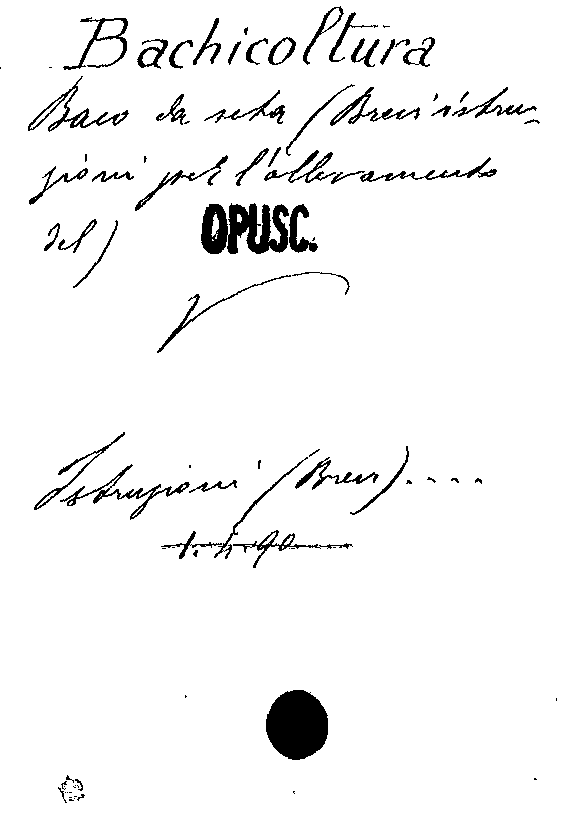 Bachicoltura
Baco da seta (Brevi istru-
zioni per l'allevamento
del)
OPUSC.
V
Istruzioni (Brevi)....
1.4.90